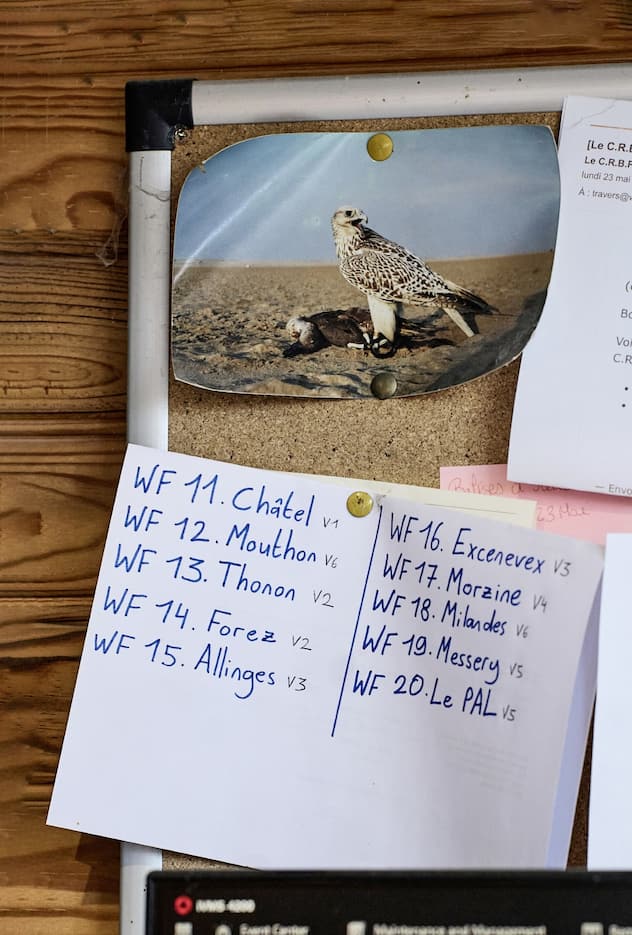 [Le C.R.B
Le C.R.B.P
lundi 23 mai
À : travers@
Bo
Voi
C.R
— Envo
23 Mai
WF 11. Châtel V1
WF 12. Mouthon V6
WF 13. Thonon V2
WF 14. Forez V2
WF 15. Allinges V3
WF 16. Excenevex V3
WF 17. Morzine V4
WF 18. Milandes V6
WF 19. Messery V5
WF 20. Le PAL V5
iVMS 4200
Event Center Maintenance and Management